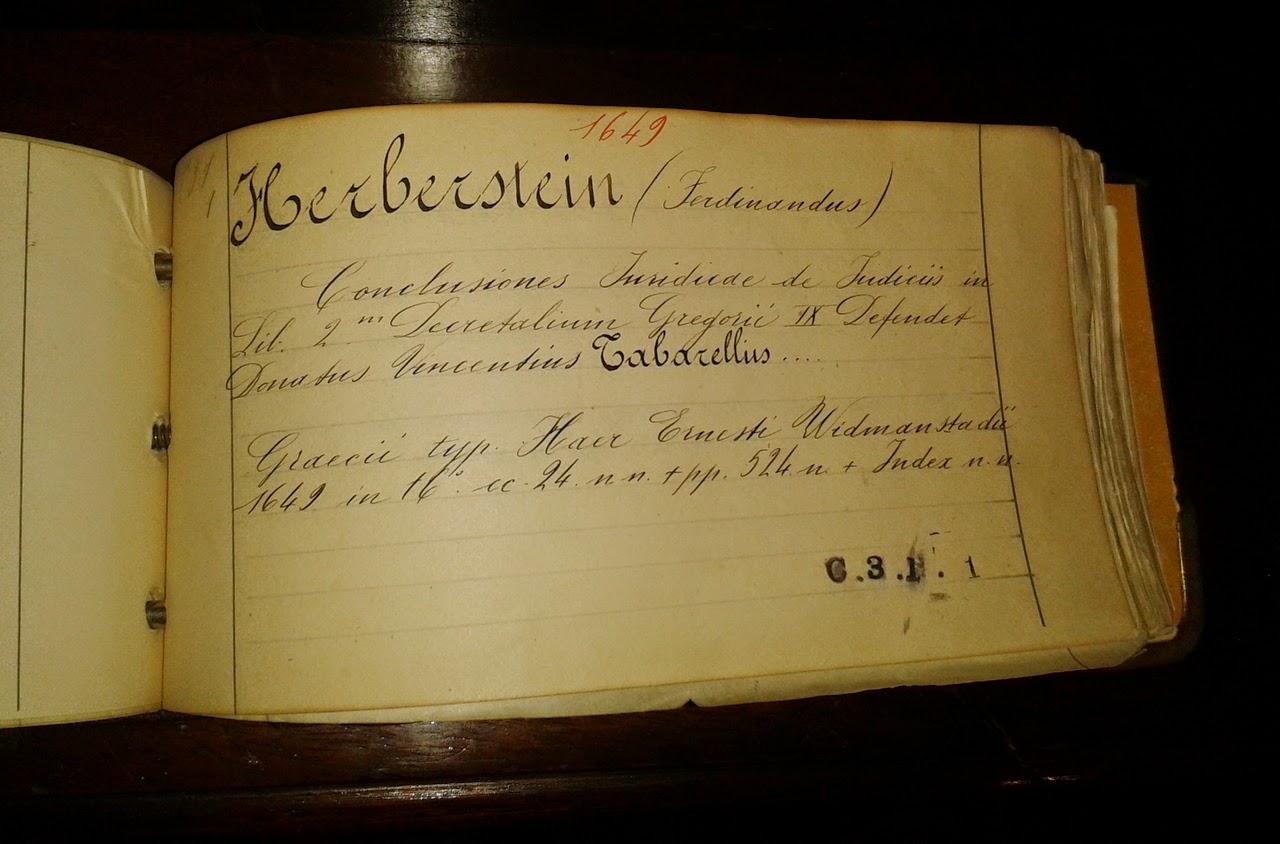 1649
Herberstein (Ferdinandus)
Conclusiones Juridicae de Judiciis in
Lib. 2.m Decretalium Gregorii IX Defendet
Donatus Vincentius Tabarellius....
Graecii typ. Haer Ernesti Widmanstadii
1649 in 16°. cc. 24. n n. + pp. 524. n + Index n. n.
C.3. . 1